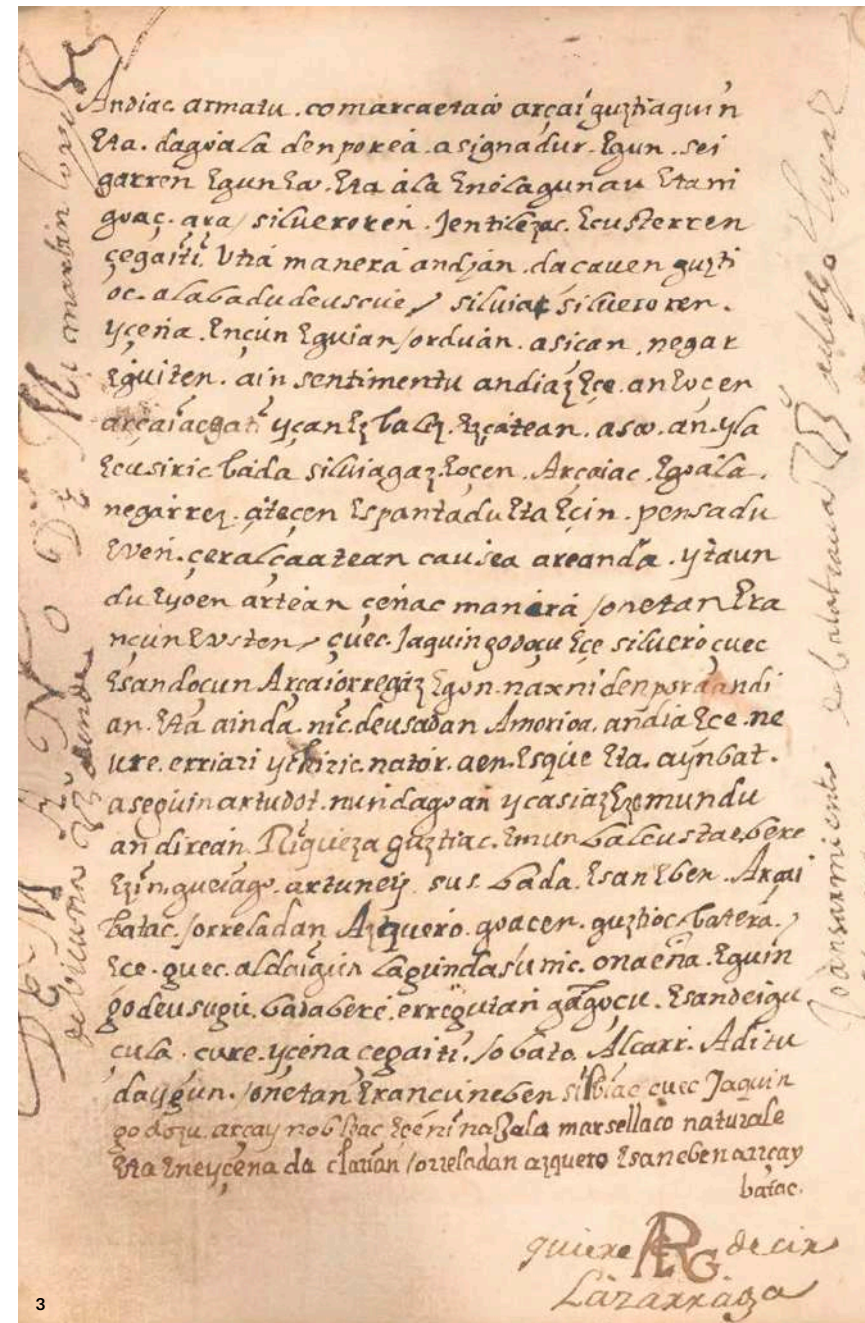 Andiac. armatu. comarcaetaco arçai guztiaquin
Eta. dagoala denporea. asignadur. Egun. sei
garren Egun Ea. Eta ala Enelagunau Eta ni
goaç. ara/ silueroren. Jentilezac. Ecusterren
çegaiti. Vtra manera andian. dacauen guzti
oc. alabadu deuscue/ siluiac silueroren.
yçena. Encun Eguian/orduan. asican. negar
Eguiten. ain sentimentu andiaz Eçe. an Eoçen
arçaiacgati ycan Ez balez. Ezcatean. asco. an. yla
Ecusiric bada siluiagaz. Eoçen. Arçaiac. Egoala.
negarrez. ateçen Espantadu Eta Eçin. pensadu
Even. çeralçaatean causea arcanda. ytaun
du Eyoen artean çeñac manera /onetan Era
nçun Eusten/ çuec. Jaquingodoçu Eçe siluero çuec
Esandoçun Arçaiorregaz Egon. naxni denpora andi
an. Eta ainda. nic. deusadan Amorioa. andia Ece. ne
ure. erriari ythiric. nator. aen. Esque Eta. aynbat.
aseguin artudot. nundagoan ycasiaz Eze mundu
an direan. Riqueza guztiac. Emun balcustae. bere
Ezin. gueiago. artuney sus. bada. Esan Eben. Arçai
batac. /orreladan Azquero. goacen. guztioc. batera./
Ece. guec. aldaiguen lagundasunic. onaena. Eguin
godeusugu. badabere. erregutan gagoçu. Esandeigu
çula. çure. yçena cegaiti. /o bato. Alcarr. Aditu
daygun. /onetan Erançuneben silbiac çuec Jaquin
godozu. arçay nobleac Eçe ni naçala marsellaco naturale
Eta Eneyçena da clarian /orreladan azquero Esaneben arçay
batac.
quiere decir
Lazarraga
3